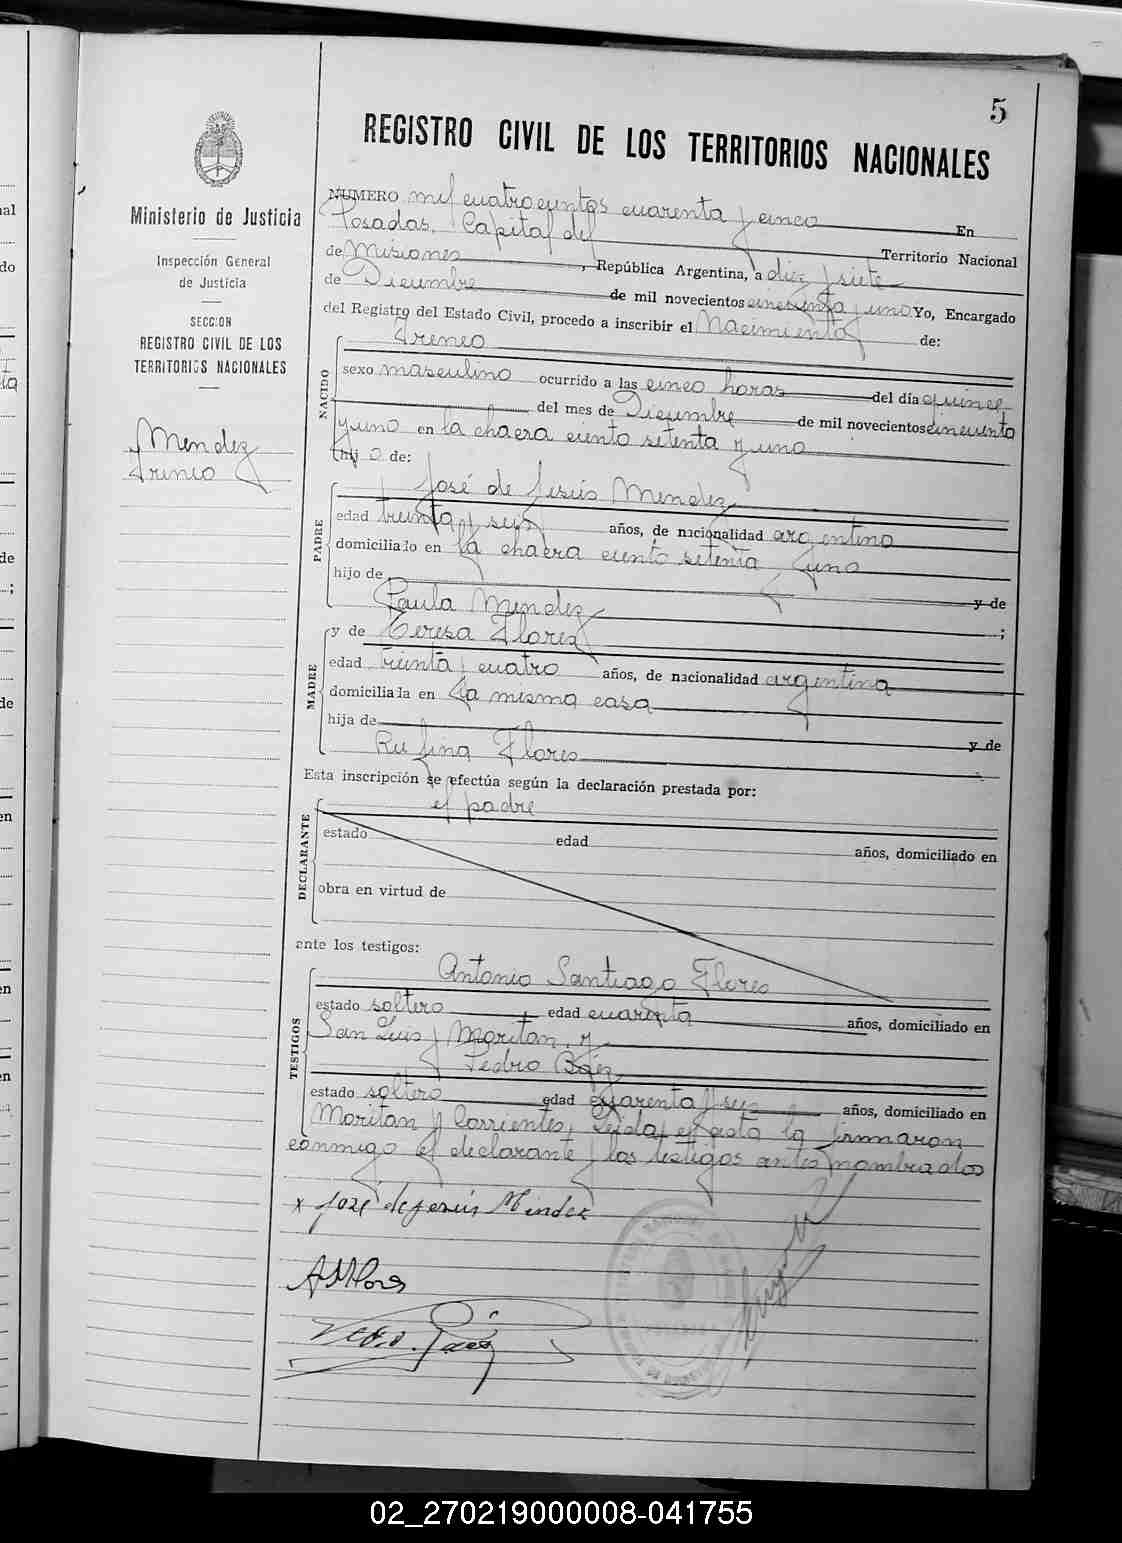 5
REGISTRO CIVIL DE LOS TERRITORIOS NACIONALES
Ministerio de Justicia
Inspección General
de Justicia
SECCION
REGISTRO CIVIL DE LOS
TERRITORIOS NACIONALES
Mendez
Irineo
NUMERO mil cuatrocientos cuarenta y cinco En
Posadas, Capital del Territorio Nacional
de Misiones, República Argentina, a diez y siete
de Diciembre de mil novecientos cincuenta y uno Yo, Encargado
del Registro del Estado Civil, procedo a inscribir el Nacimiento de:
Irineo
NACIDO
sexo masculino ocurrido a las cinco horas del día quince
del mes de Diciembre de mil novecientos cincuenta
y uno en la chacra ciento setenta y uno
hijo de:
José de Jesús Mendez
PADRE
edad treinta y seis años, de nacionalidad argentino
domiciliado en la chacra ciento setenta y uno
hijo de y de
Paula Mendez ;
y de Teresa Flores
MADRE
edad treinta y cuatro años, de nacionalidad argentina
domiciliada en la misma casa
hija de y de
Rufina Flores ;
Esta inscripción se efectúa según la declaración prestada por:
el padre
DECLARANTE
estado edad años, domiciliado en
obra en virtud de
ante los testigos:
Antonio Santiago Flores
TESTIGOS
estado soltero, edad cuarenta años, domiciliado en
San Luis y Moritan, y
Pedro Báez
estado soltero edad cuarenta y seis años, domiciliado en
Moritan y Corrientes, Leida el acta la firmaron
conmigo el declarante y los testigos antes nombrados
x José de jesús Mendez
02_270219000008-041755